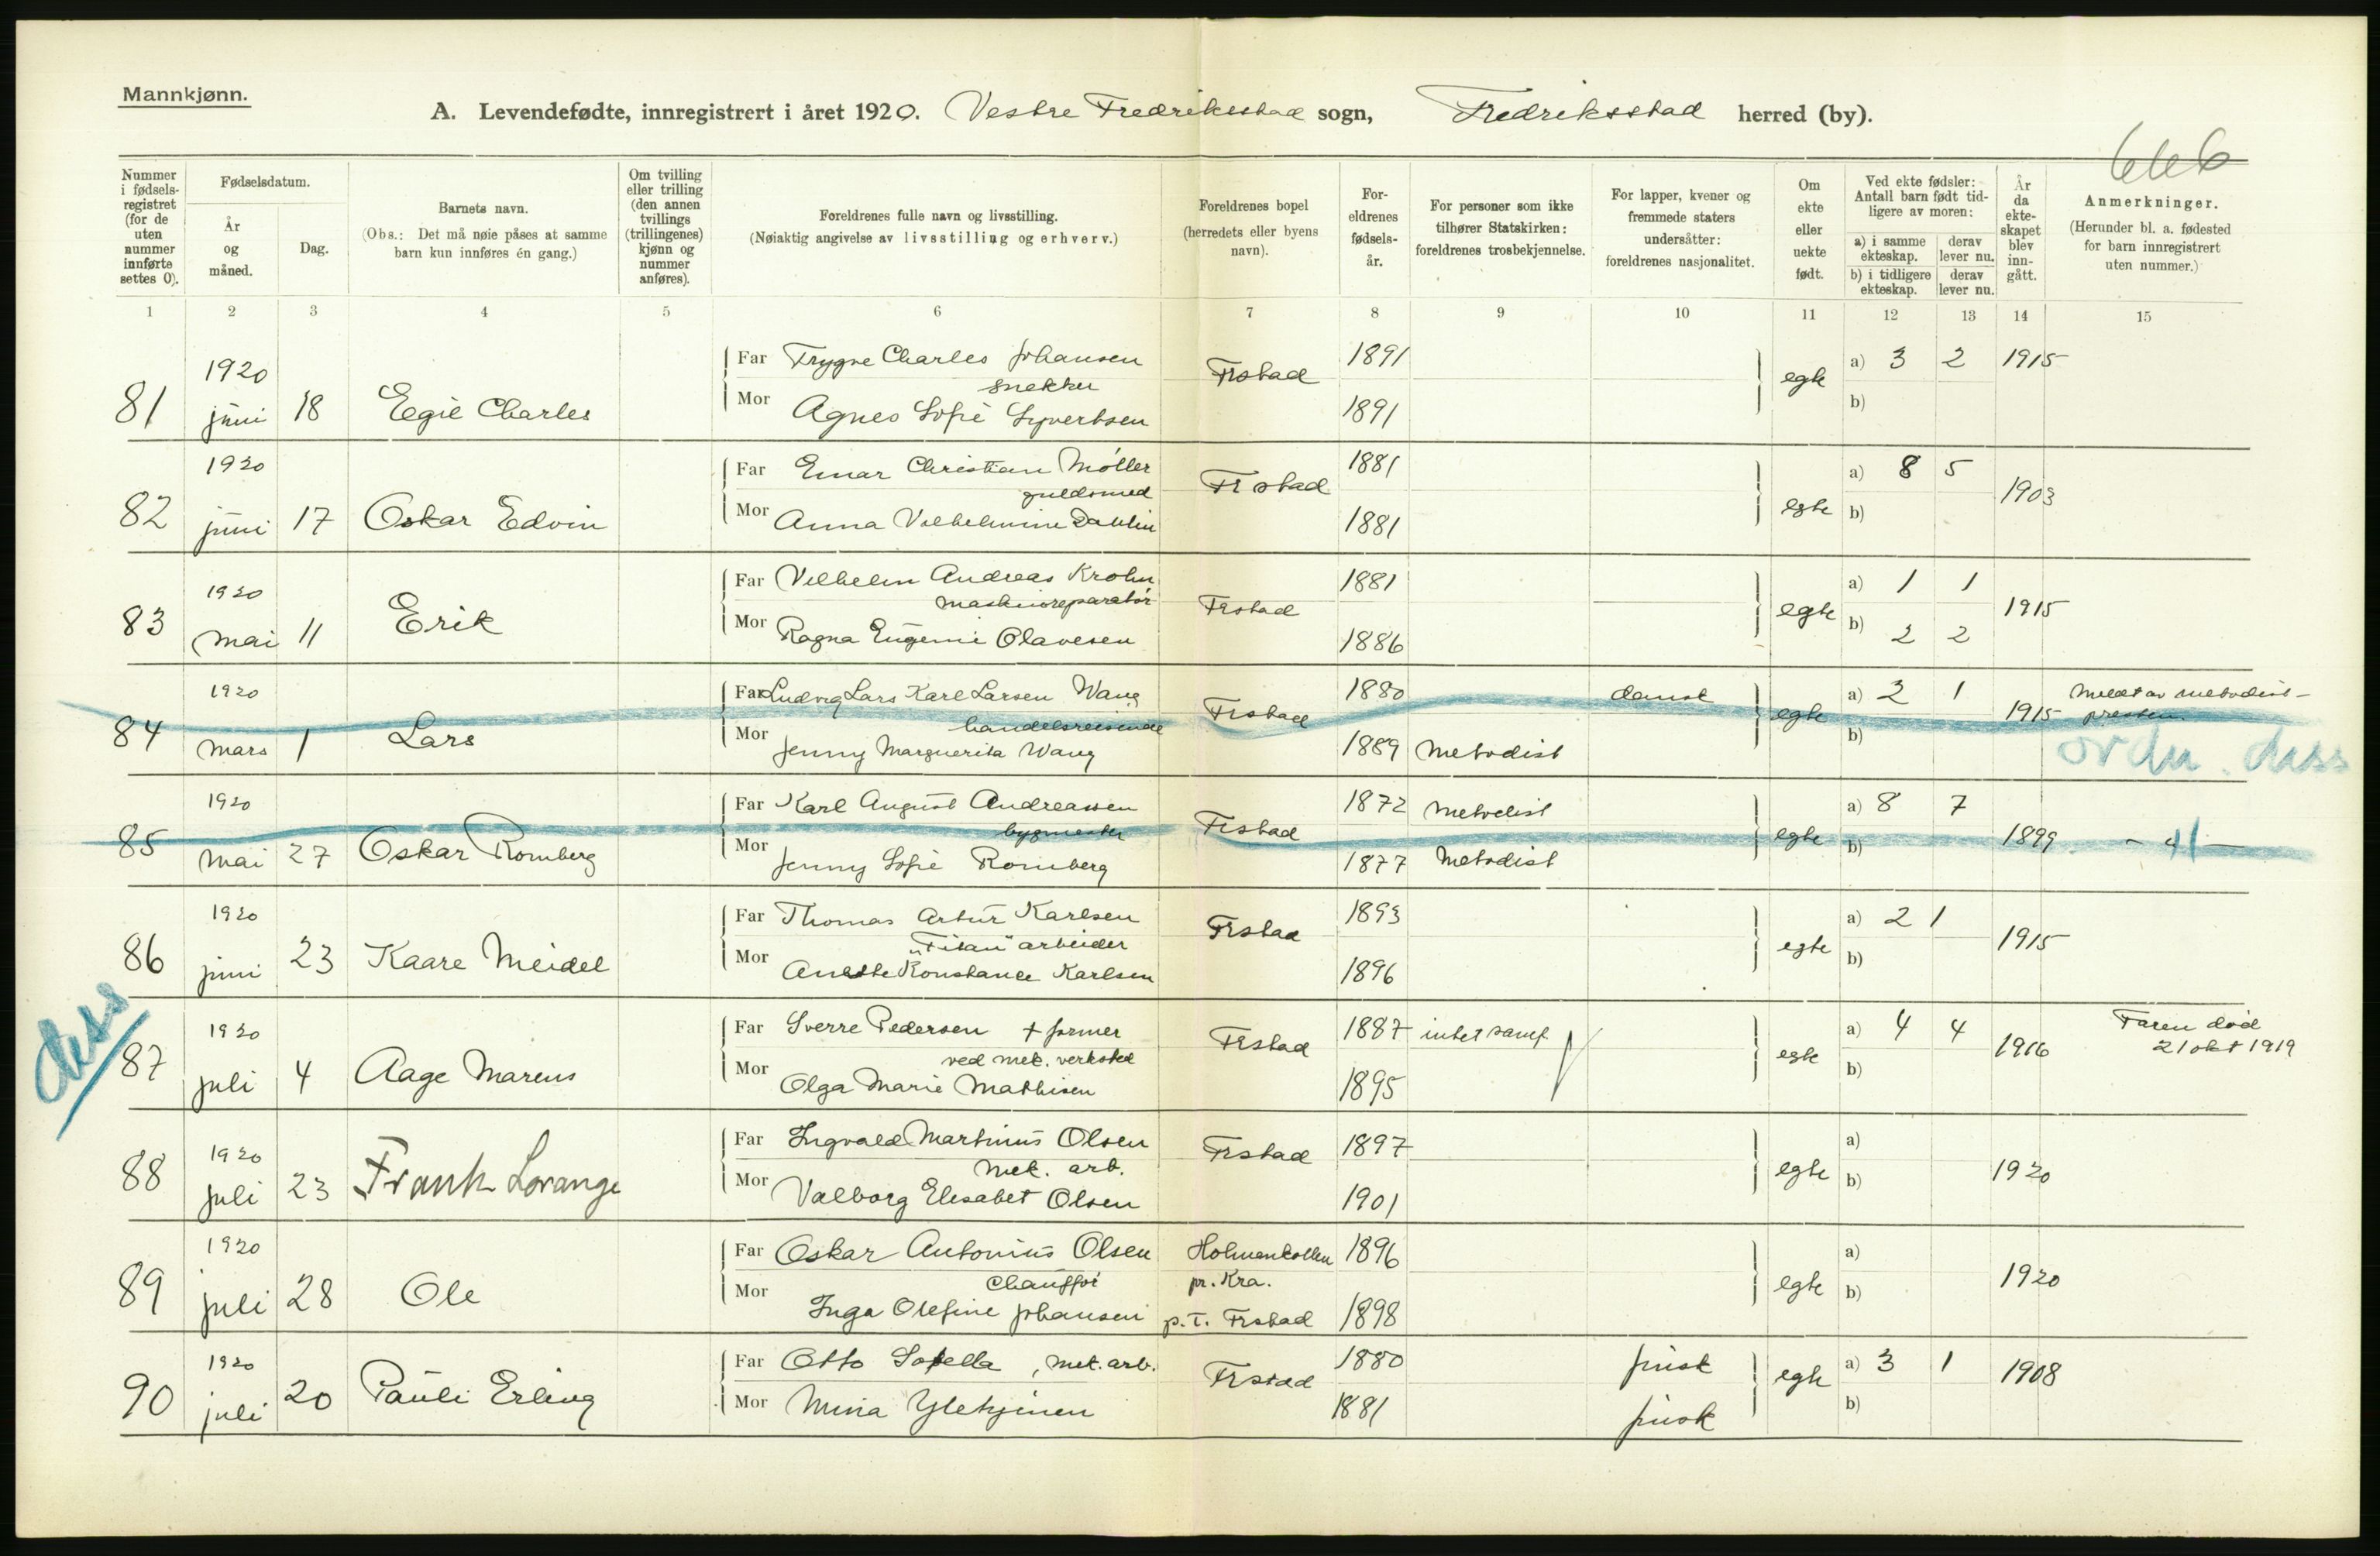 Mannkjønn.
A. Levendefødte, innregistrert i året 1920. Vestre Fredriksstad sogn, Fredriksstad herred (by).
666
Nummer i fødsels-registret (for de uten nummer innførte settes 0).
Fødselsdatum.
År og måned.
Dag.
Barnets navn.
(Obs.: Det må nøie påses at samme barn kun innføres én gang.)
Om tvilling eller trilling (den annen tvillings (trillingenes) kjønn og nummer anføres).
Foreldrenes fulle navn og livsstilling.
(Nøiaktig angivelse av livsstilling og erhverv.)
Foreldrenes bopel (herredets eller byens navn).
For-eldrenes fødsels-år.
For personer som ikke tilhører Statskirken: foreldrenes trosbekjennelse.
For lapper, kvener og fremmede staters undersåtter: foreldrenes nasjonalitet.
Om ekte eller uekte født.
Ved ekte fødsler: Antall barn født tid-ligere av moren:
a) i samme ekteskap. derav lever nu.
b) i tidligere ekteskap. derav lever nu.
År da ekte-skapet blev inn-gått.
Anmerkninger.
(Herunder bl. a. fødested for barn innregistrert uten nummer.)
1 2 3 4 5 6 7 8 9 10 11 12 13 14 15
81 1920 juni 18 Egil Charles
Far Trygve Charles Johansen snekker Frstad 1891 egte a) 3 2 1915
Mor Agnes Sofie Syvertsen 1891 b)
82 1920 juni 17 Oskar Edvin
Far Einar Christian Møller guldsmed Frstad 1881 egte a) 8 5 1903
Mor Anna Vilhelmine Dahlin 1881 b)
83 1920 mai 11 Erik
Far Vilhelm Andreas Krohn maskinreparatør Frstad 1881 egte a) 1 1 1915
Mor Ragna Eugenie Olavesen 1886 b) 2 2
84 1920 mars 1 Lars
Far Ludvig Lars Karl Larsen Wang handelsreisende Frstad 1880 dansk egte a) 2 1 1915 Meldt av metodist-presten.
Mor Jenny Marguerita Wang 1889 Metodist b)
diss
85 1920 mai 27 Oskar Romberg
Far Karl August Andreassen bygmester Frstad 1872 Metodist egte a) 8 7 1899 - 4 -
Mor Jenny Sofie Romberg 1877 Metodist b)
86 1920 juni 23 Kaare Meidel
Far Thomas Artur Karlsen „Titan" arbeider Frstad 1893 egte a) 2 1 1915
Mor Anette Konstance Karlsen 1896 b)
diss
87 1920 juli 4 Aage Marcus
Far Sverre Pedersen + former ved mek. verksted Frstad 1887 intet samf. egte a) 4 4 1916 Faren død 21 okt 1919
Mor Olga Marie Mathisen 1895 b)
88 1920 juli 23 Frank Lorange
Far Ingvald Martinius Olsen Mek. arb. Frstad 1897 egte a) 1920
Mor Valborg Elisabet Olsen 1901 b)
89 1920 juli 28 Ole
Far Oskar Antonius Olsen Chauffør Holmenkollen pr. Kra. 1896 egte a) 1920
Mor Inga Olefine Johansen p.t. Frstad 1898 b)
90 1920 juli 20 Pauli Erling
Far Otto , mek. arb. Frstad 1880 finsk egte a) 3 1 1908
Mor Miina 1881 finsk b)